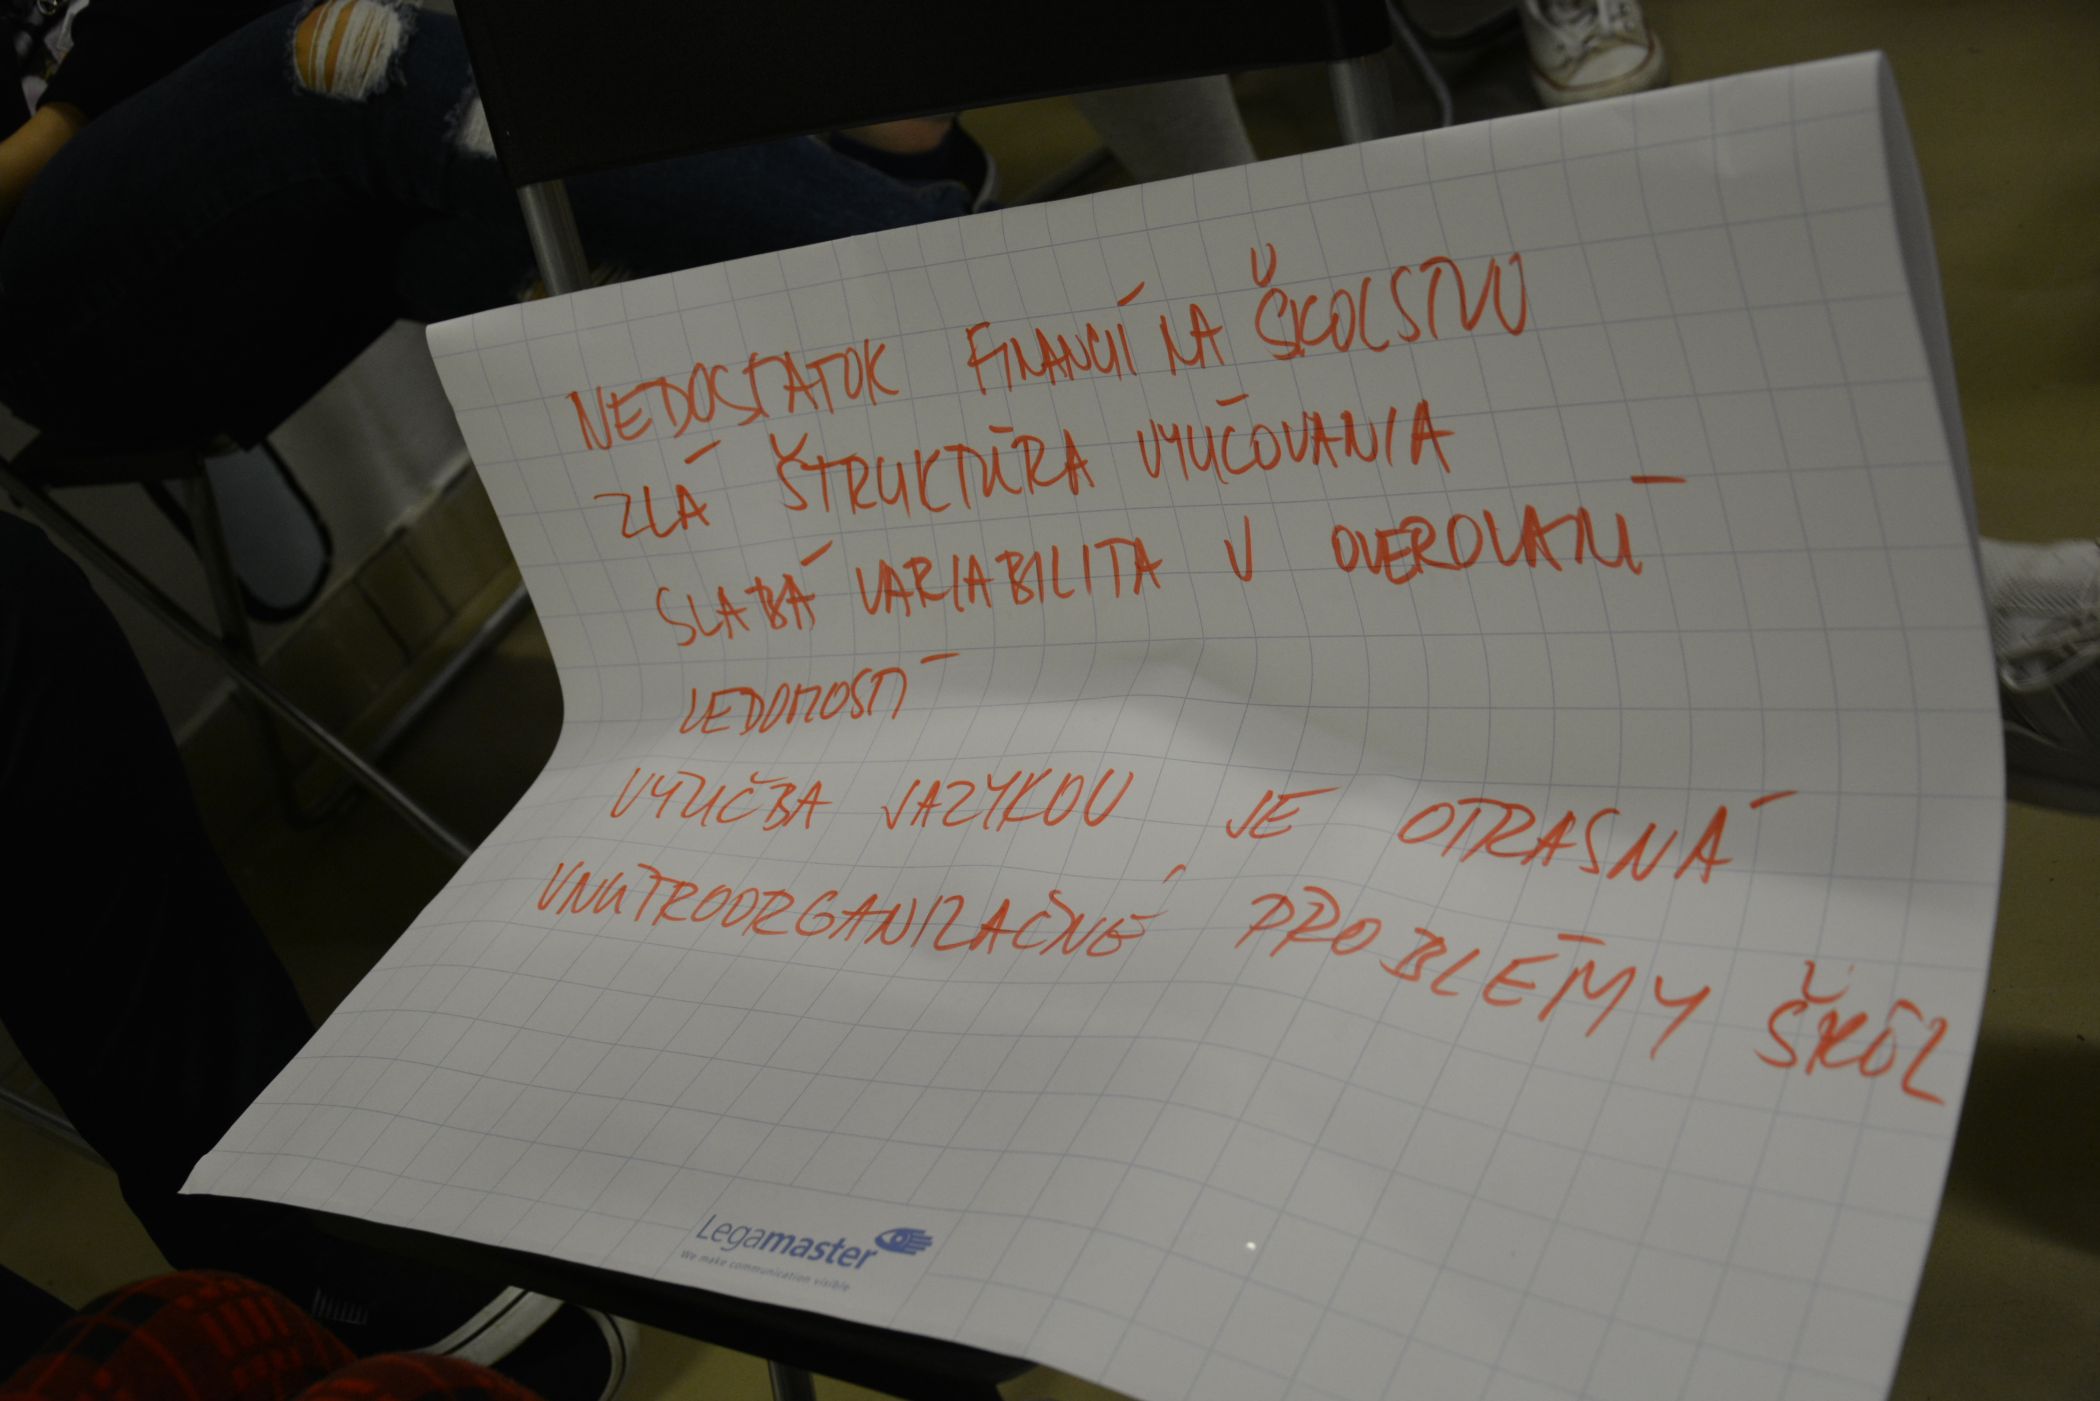 NEDOSTATOK FINANCIÍ NA ŠKOLSTVO
ZLÁ ŠTRUKTÚRA VYUČOVANIA
SLABÁ VARIABILITA V OVEROVANÍ
VEDOMOSTÍ
VÝUČBA JAZYKOV JE OTRASNÁ
VNUTROORGANIZAČNÉ PROBLÉMY ŠKÔL
Legamaster
We make communication visible